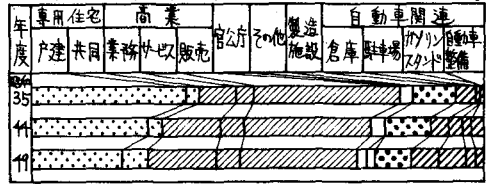 年度 専用住宅 商業 官公庁 その他 製造施設 自動車関連
戸建 共同 業務 サービス 販売 倉庫 駐車場 ガソリンスタンド 自動車整備
昭和
35
44
49